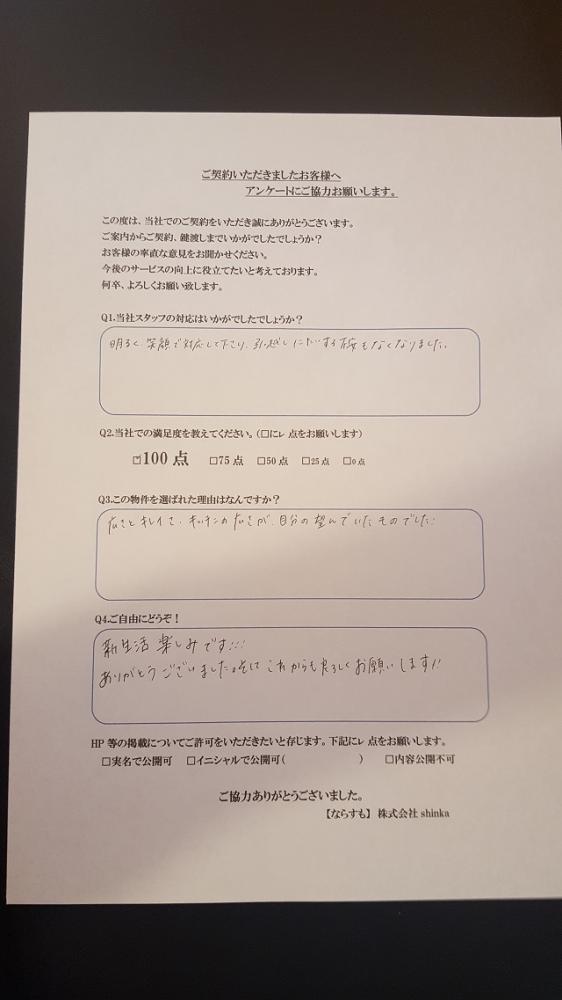 ご契約いただきましたお客様へ
アンケートにご協力お願いします。
この度は、当社でのご契約をいただき誠にありがとうございます。
ご案内からご契約、鍵渡しまでいかがでしたでしょうか？
お客様の率直な意見をお聞かせください。
今後のサービスの向上に役立てたいと考えております。
何卒、よろしくお願い致します。
Q1.当社スタッフの対応はいかがでしたでしょうか？
明るく、笑顔で対応して下さり、引っ越しにたいする もなくなりました。
Q2.当社での満足度を教えてください。(□にレ点をお願いします)
☑100点 □75点 □50点 □25点 □0点
Q3.この物件を選ばれた理由はなんですか？
広さとキレイさ、キッチンの広さが、自分の望んでいたものでした!
Q4.ご自由にどうぞ！
新生活楽しみです!!!
ありがとうございました。そして これからも良ろしくお願いします!!
HP等の掲載についてご許可をいただきたいと存じます。下記にレ点をお願いします。
□実名で公開可 □イニシャルで公開可( ) □内容公開不可
ご協力ありがとうございました。
【ならすも】株式会社shinka